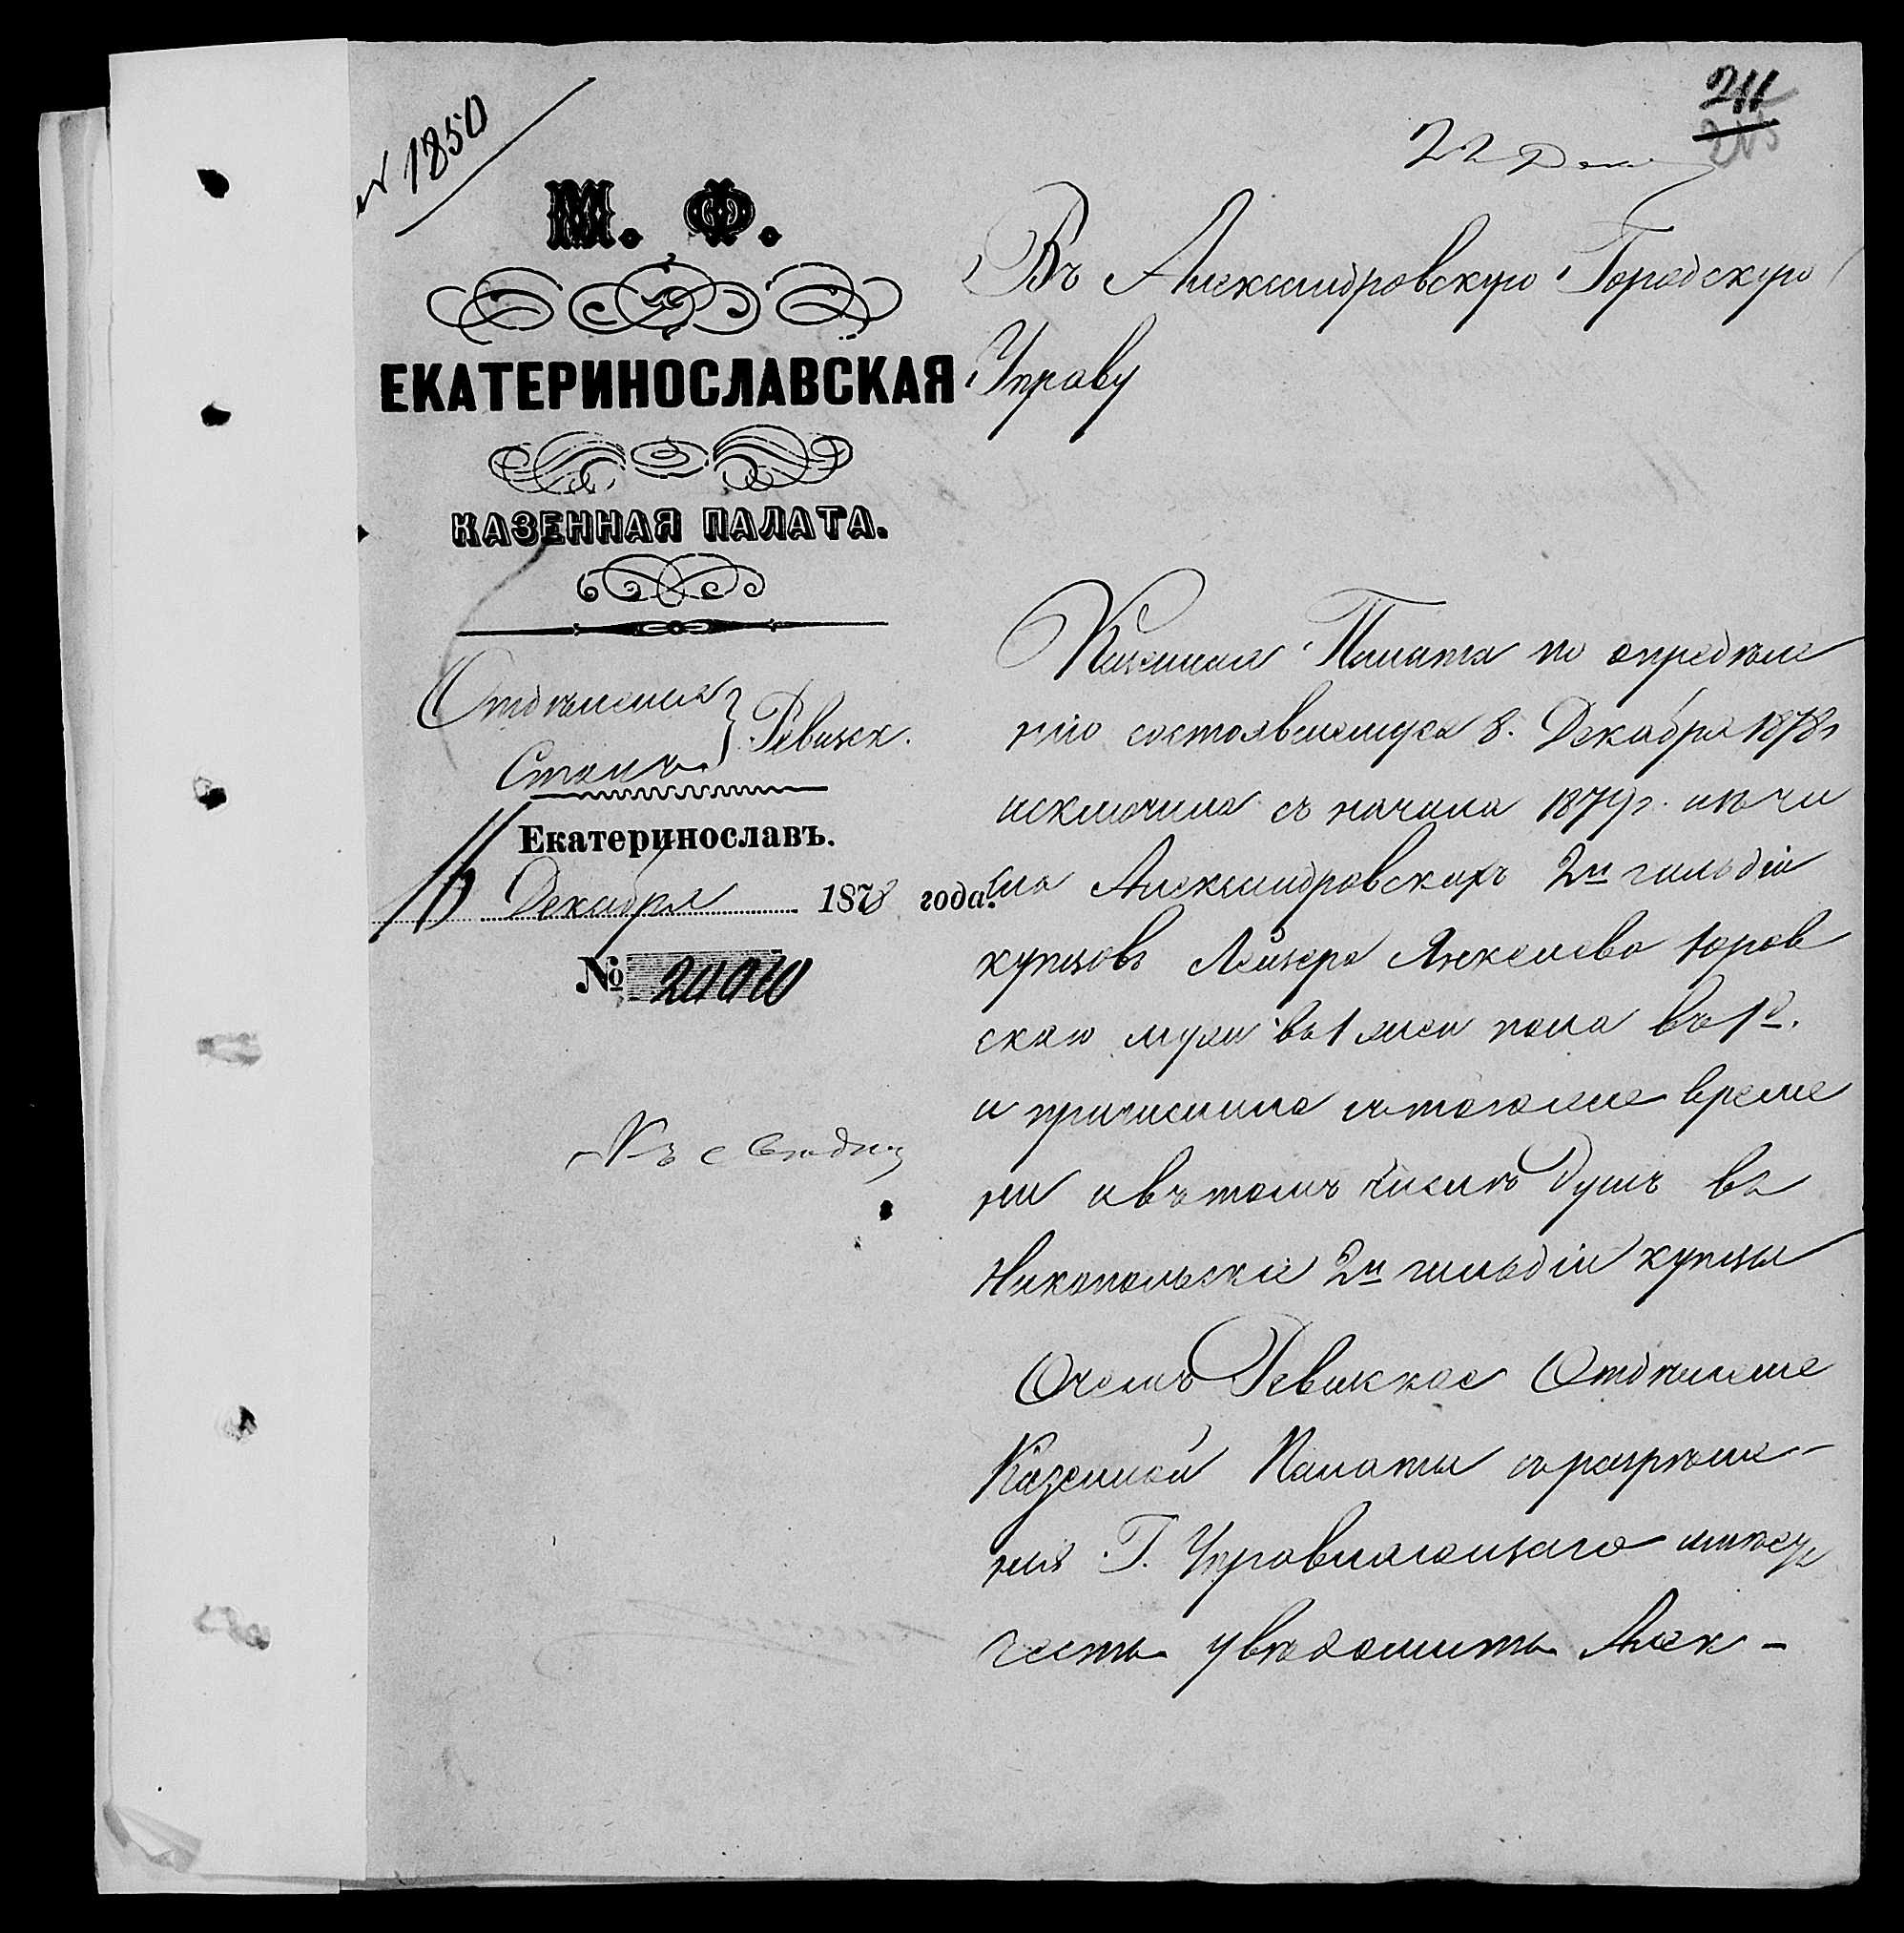 № 1850
211
22 Дек
М. Ф.
ЕКАТЕРИНОСЛАВСКАЯ
КАЗЕННАЯ ПАЛАТА.
Отдѣленія
Столъ
Ревизск.
Екатеринославъ.
16 Декабря 1878 года.
№ 20010
Къ свѣдѣн
Въ Александровскую Городскую
Управу
Казенная Палата по опредѣле
нію состоявшемуся 8. Декабря 1878 г
исключила съ начала 1879 г. изъ чи
сла Александровскихъ 2й гильдіи
купцовъ Лейзера Янкелева Юров
скаго муж въ 1 жен пола въ 1 д.
и причислила съ тогоже време
ни и въ томъ числѣ душъ въ
Никопольскіе 2й гильдіи купцы
О чемъ Ревизское Отдѣленіе
Казенной Палаты съ разрѣше-
нія Г. Управляющаго имѣетъ
честь увѣдомить Алек-